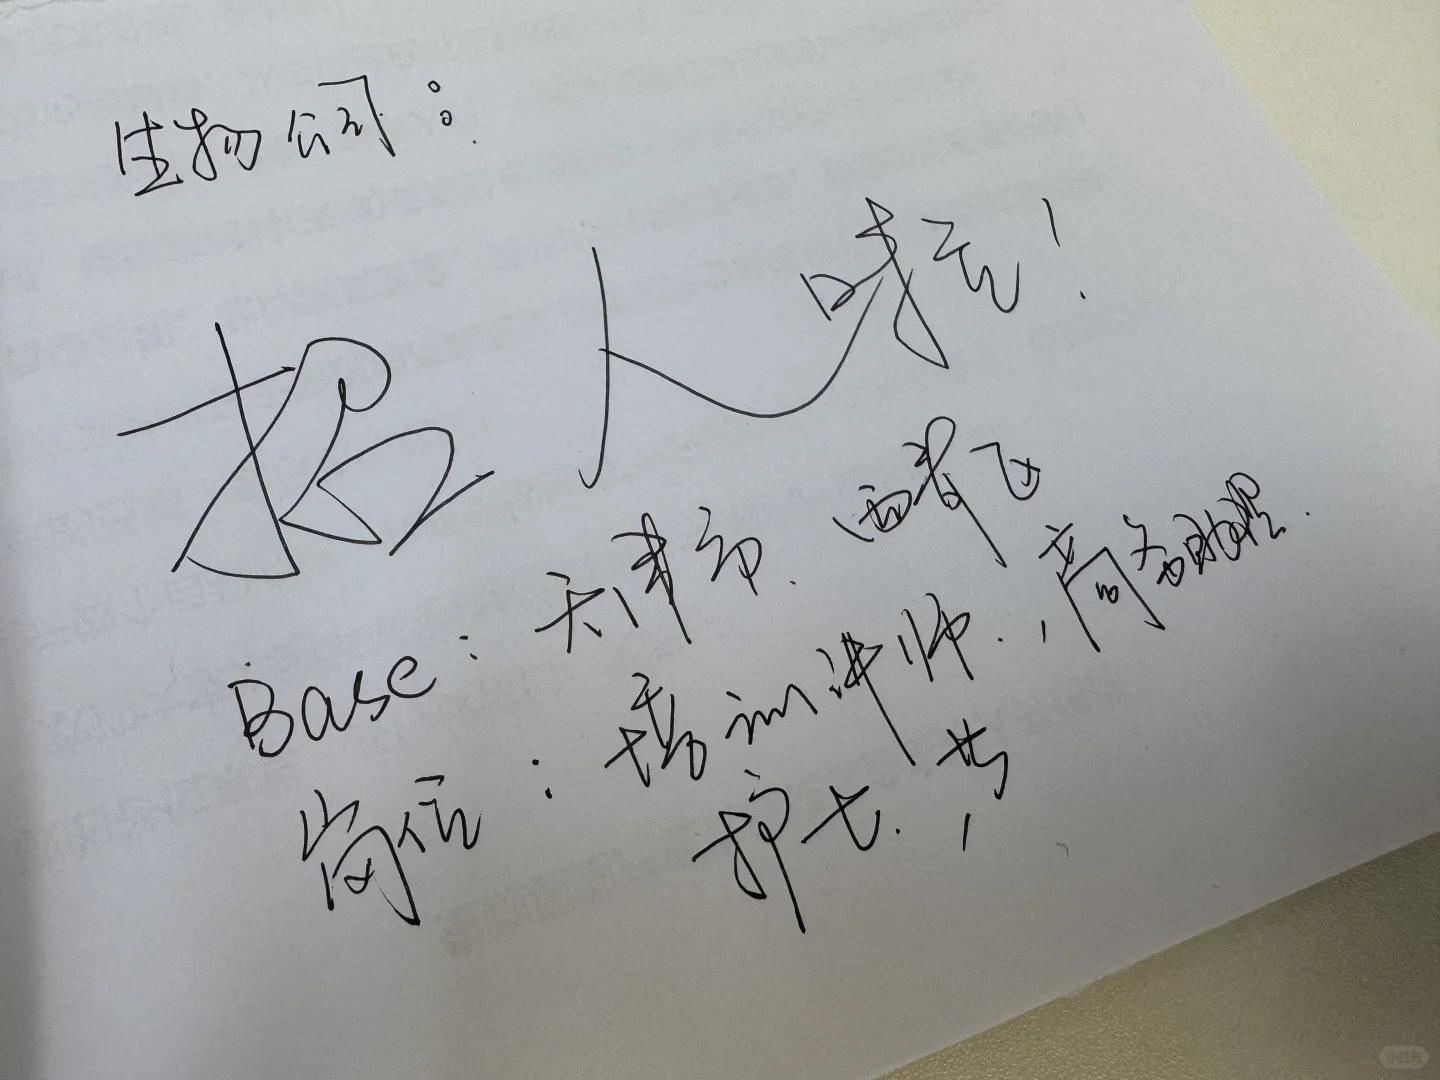 生物公司：
招人啦！
Base：天津市、西青区
岗位：培训讲师、商务助理、
护士、
小红书